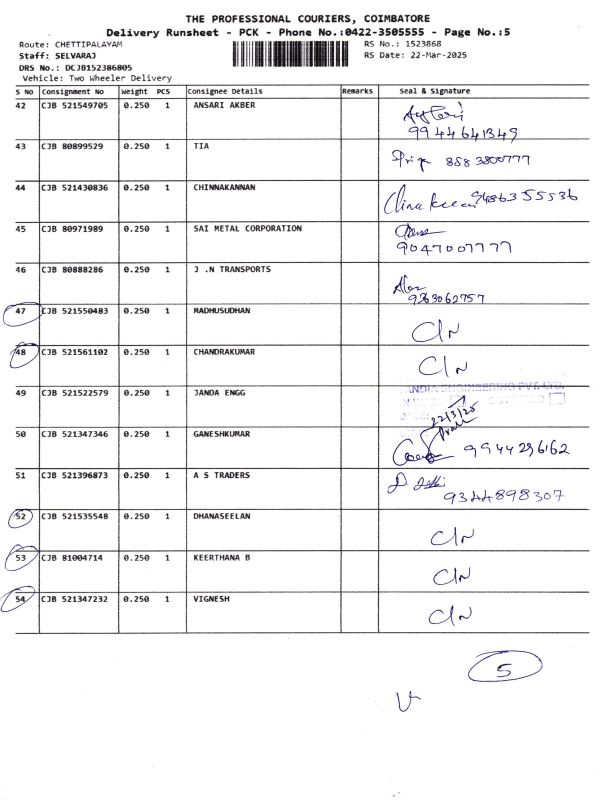 THE PROFESSIONAL COURIERS, COIMBATORE
Delivery Runsheet - PCK - Phone No.:0422-3505555 - Page No.:5
Route: CHETTIPALAYAM RS No.: 1523868
Staff: SELVARAJ RS Date: 22-Mar-2025
DRS No.: DCJB152386805
Vehicle: Two Wheeler Delivery
S No Consignment No Weight PCS Consignee Details Remarks Seal & Signature
42 CJB 521549705 0.250 1 ANSARI AKBER
9944641349
43 CJB 80899529 0.250 1 TIA Priya 8883800777
44 CJB 521430836 0.250 1 CHINNAKANNAN 9486355536
45 CJB 80971989 0.250 1 SAI METAL CORPORATION
9047007777
46 CJB 80888286 0.250 1 J .N TRANSPORTS
9363062757
47 CJB 521550483 0.250 1 MADHUSUDHAN C/N
48 CJB 521561102 0.250 1 CHANDRAKUMAR C/N
49 CJB 521522579 0.250 1 JANDA ENGG ENGINEERING PVT. LTD.
22/3/25
50 CJB 521347346 0.250 1 GANESHKUMAR 9944296162
51 CJB 521396873 0.250 1 A S TRADERS
9344898307
52 CJB 521535548 0.250 1 DHANASEELAN C/N
53 CJB 81004714 0.250 1 KEERTHANA B C/N
54 CJB 521347232 0.250 1 VIGNESH C/N
5